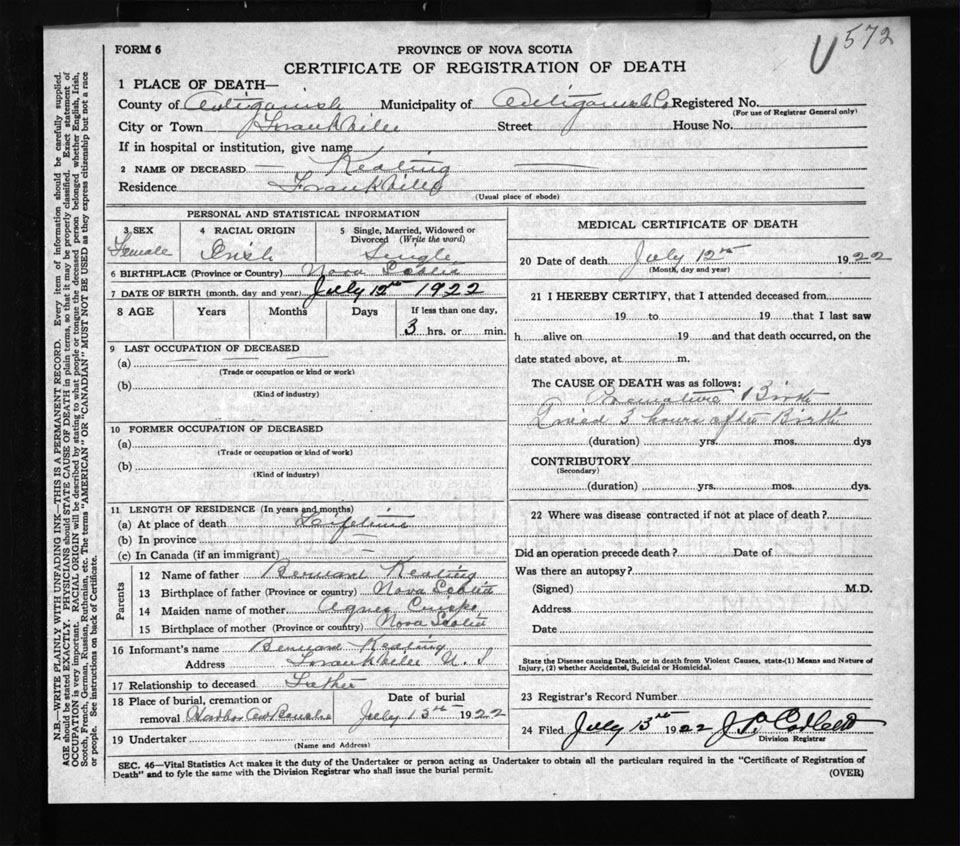 572
FORM 6
PROVINCE OF NOVA SCOTIA
CERTIFICATE OF REGISTRATION OF DEATH
1 PLACE OF DEATH—
County of Antigonish Municipality of Antigonish Co Registered No.
(For use of Registrar General only)
City or Town Frankville Street House No.
If in hospital or institution, give name
2 NAME OF DECEASED — Keating
Residence Frankville
(Usual place of abode)
PERSONAL AND STATISTICAL INFORMATION
3 SEX 4 RACIAL ORIGIN 5 Single, Married, Widowed or Divorced (Write the word)
Female Irish Single
6 BIRTHPLACE (Province or Country) Nova Scotia
7 DATE OF BIRTH (month, day and year) July 12th 1922
8 AGE Years Months Days If less than one day,
3 hrs. or min.
9 LAST OCCUPATION OF DECEASED
(a)
(Trade or occupation or kind or work)
(b)
(Kind of industry)
10 FORMER OCCUPATION OF DECEASED
(a)
(Trade or occupation or kind of work)
(b)
(Kind of industry)
11 LENGTH OF RESIDENCE (In years and months)
(a) At place of death Lifetime
(b) In province —
(c) In Canada (if an immigrant) —
Parents
12 Name of father Bernard Keating
13 Birthplace of father (Province or country) Nova Scotia
14 Maiden name of mother Agnes
15 Birthplace of mother (Province or country) Nova Scotia
16 Informant's name Bernard Keating
Address Frankville N. S
17 Relationship to deceased Father
18 Place of burial, cremation or removal Harbor Au Bouche Date of burial July 13th 1922
19 Undertaker
(Name and Address)
MEDICAL CERTIFICATE OF DEATH
20 Date of death July 12th 1922
(Month, day and year)
21 I HEREBY CERTIFY, that I attended deceased from
19 to 19 that I last saw
h alive on 19 and that death occurred, on the
date stated above, at m.
The CAUSE OF DEATH was as follows:
Premature Birth
Died 3 hours after Birth
(duration) yrs. mos. dys
CONTRIBUTORY
(Secondary)
(duration) yrs. mos. dys.
22 Where was disease contracted if not at place of death?
Did an operation precede death? Date of
Was there an autopsy?
(Signed) M.D.
Address
Date
State the Disease causing Death, or in death from Violent Causes, state-(1) Means and Nature of
Injury, (2) whether Accidental, Suicidal or Homicidal.
23 Registrar's Record Number
24 Filed July 13th 1922 J P Corbett
Division Registrar
SEC. 46—Vital Statistics Act makes it the duty of the Undertaker or person acting as Undertaker to obtain all the particulars required in the "Certificate of Registration of
Death" and to fyle the same with the Division Registrar who shall issue the burial permit.
(OVER)
N.B.—WRITE PLAINLY WITH UNFADING INK—THIS IS A PERMANENT RECORD. Every item of information should be carefully supplied.
AGE should be stated EXACTLY. PHYSICIANS should STATE CAUSE OF DEATH in plain terms, so that it may be properly classified. Exact statement of
OCCUPATION is very important. RACIAL ORIGIN will be described by stating to what people or tongue the deceased person belonged whether English, Irish,
Scotch, French, German, Russian, Ruthenian, etc. The terms "AMERICAN" OR "CANADIAN" MUST NOT BE USED as they express citizenship but not a race
or people. See instructions on back of Certificate.